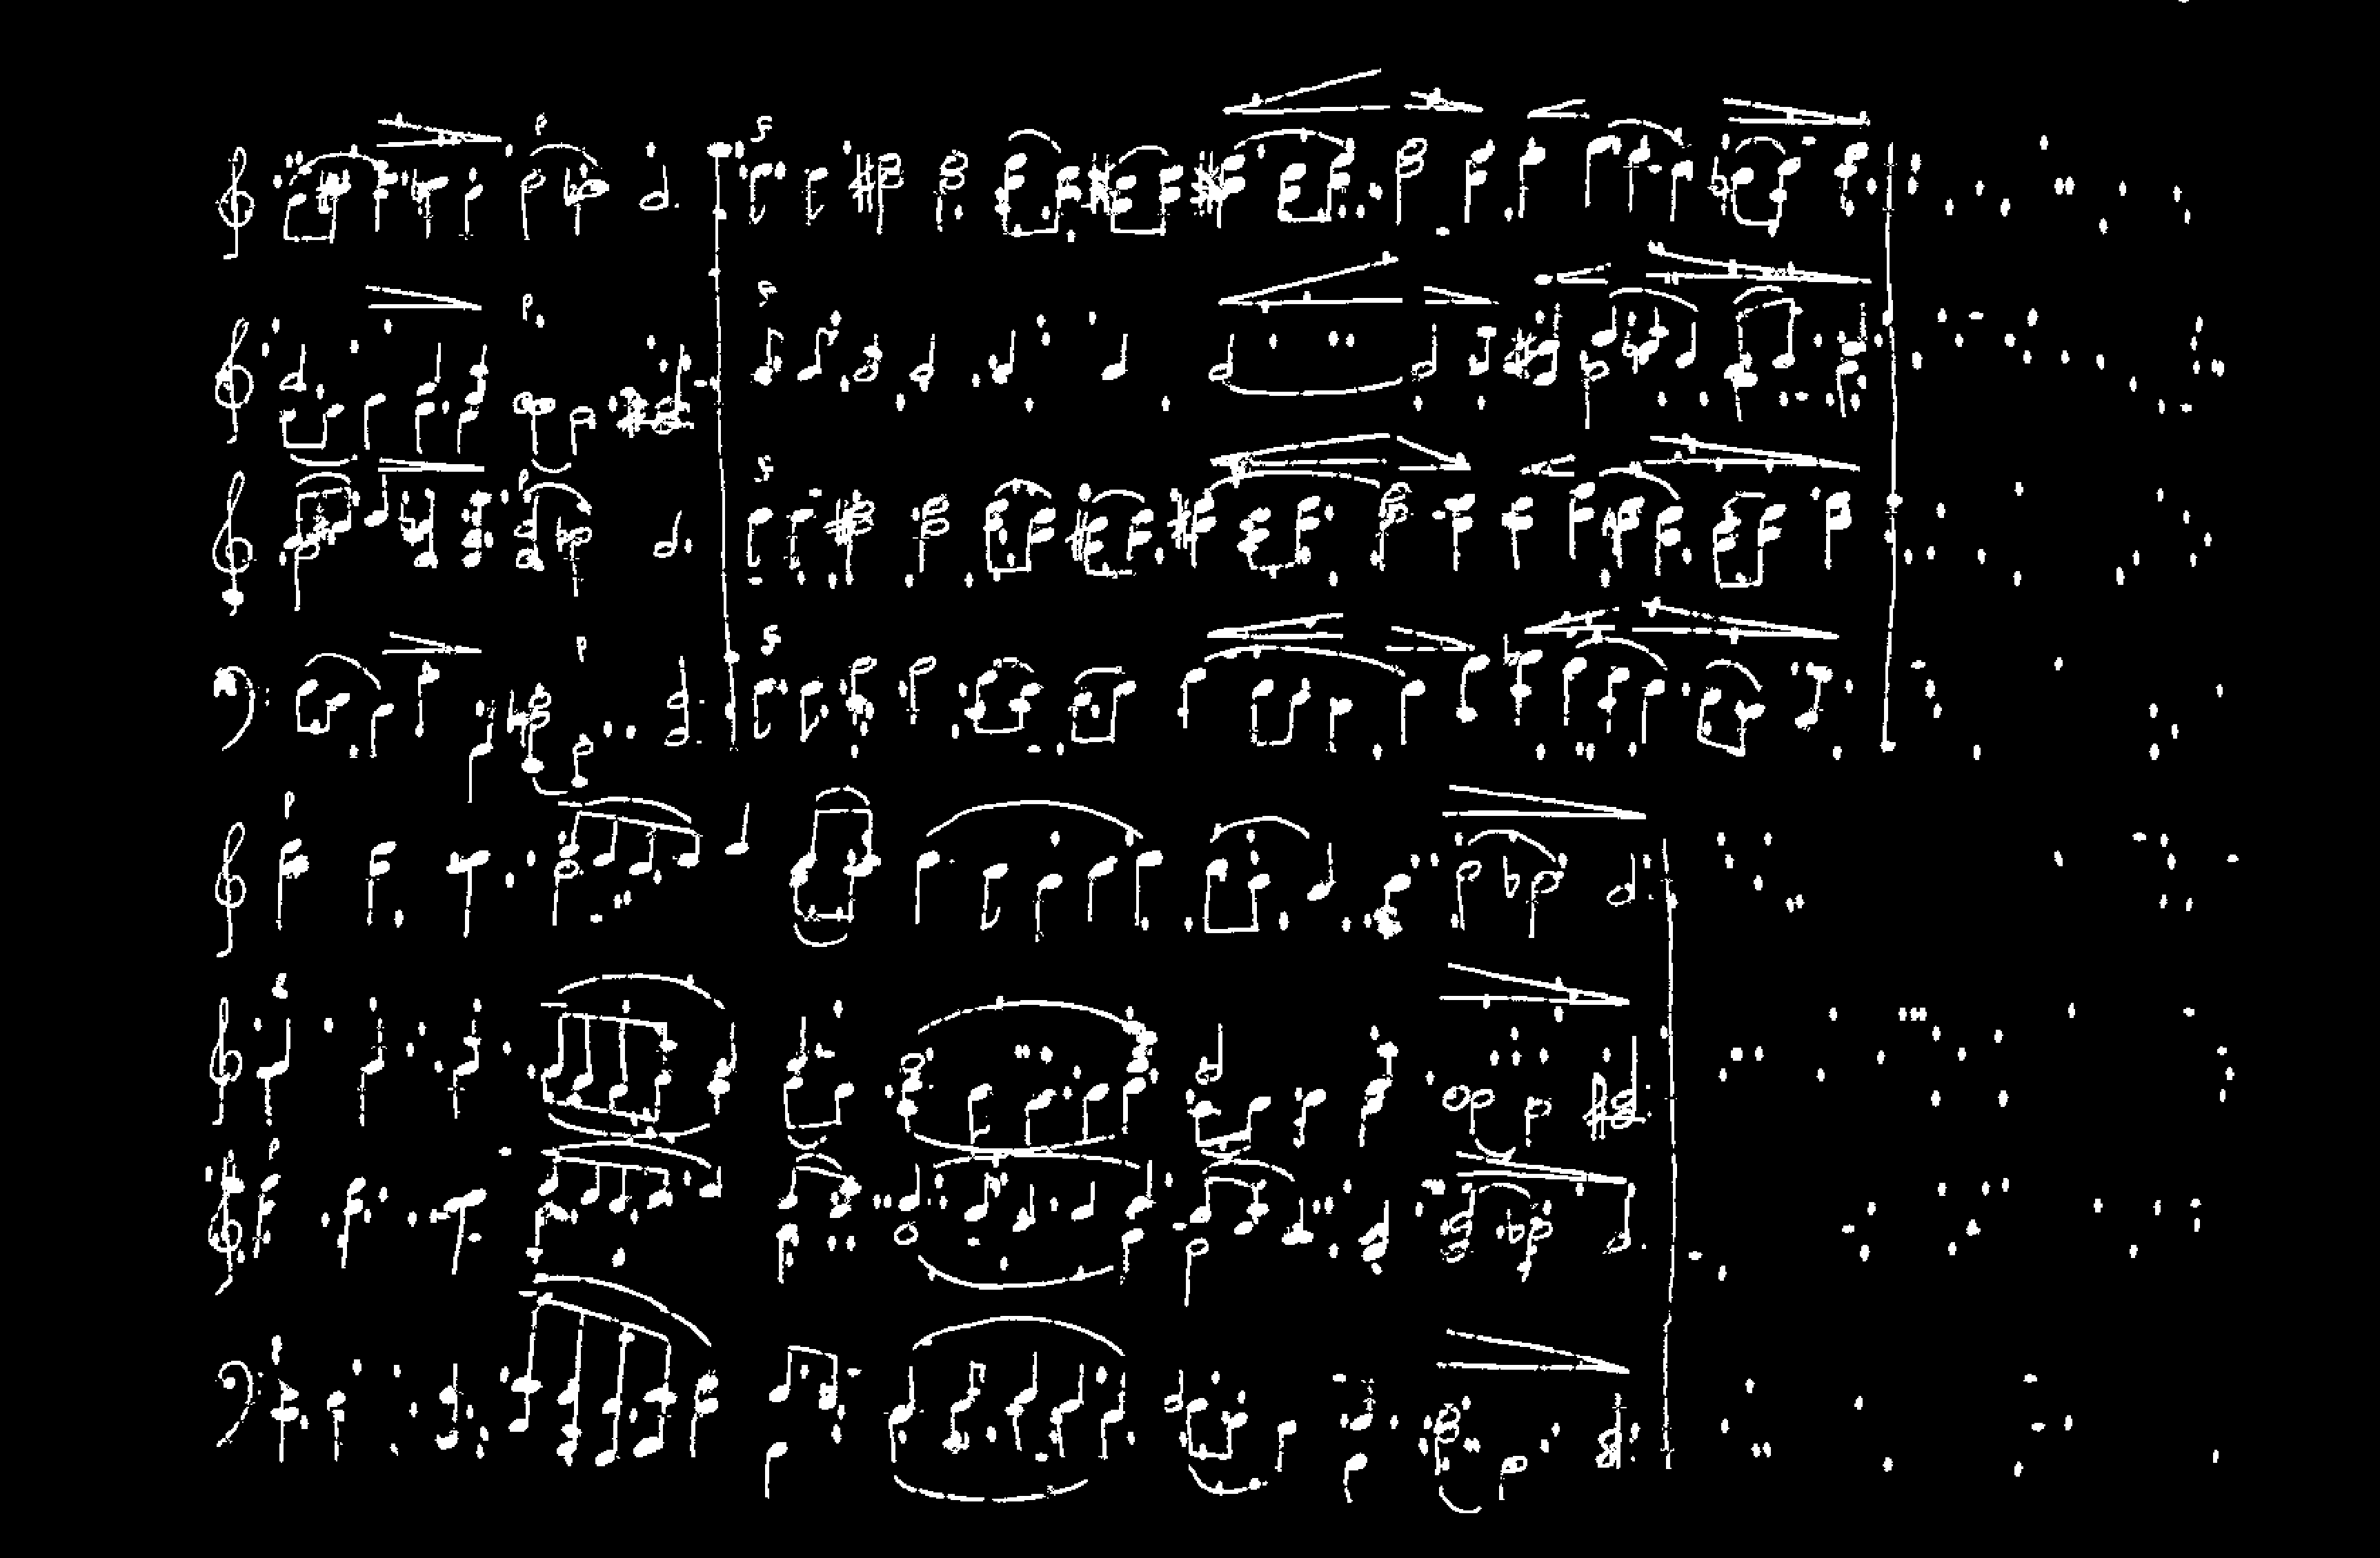 p
f
p
f
p
f
p
f
p
p